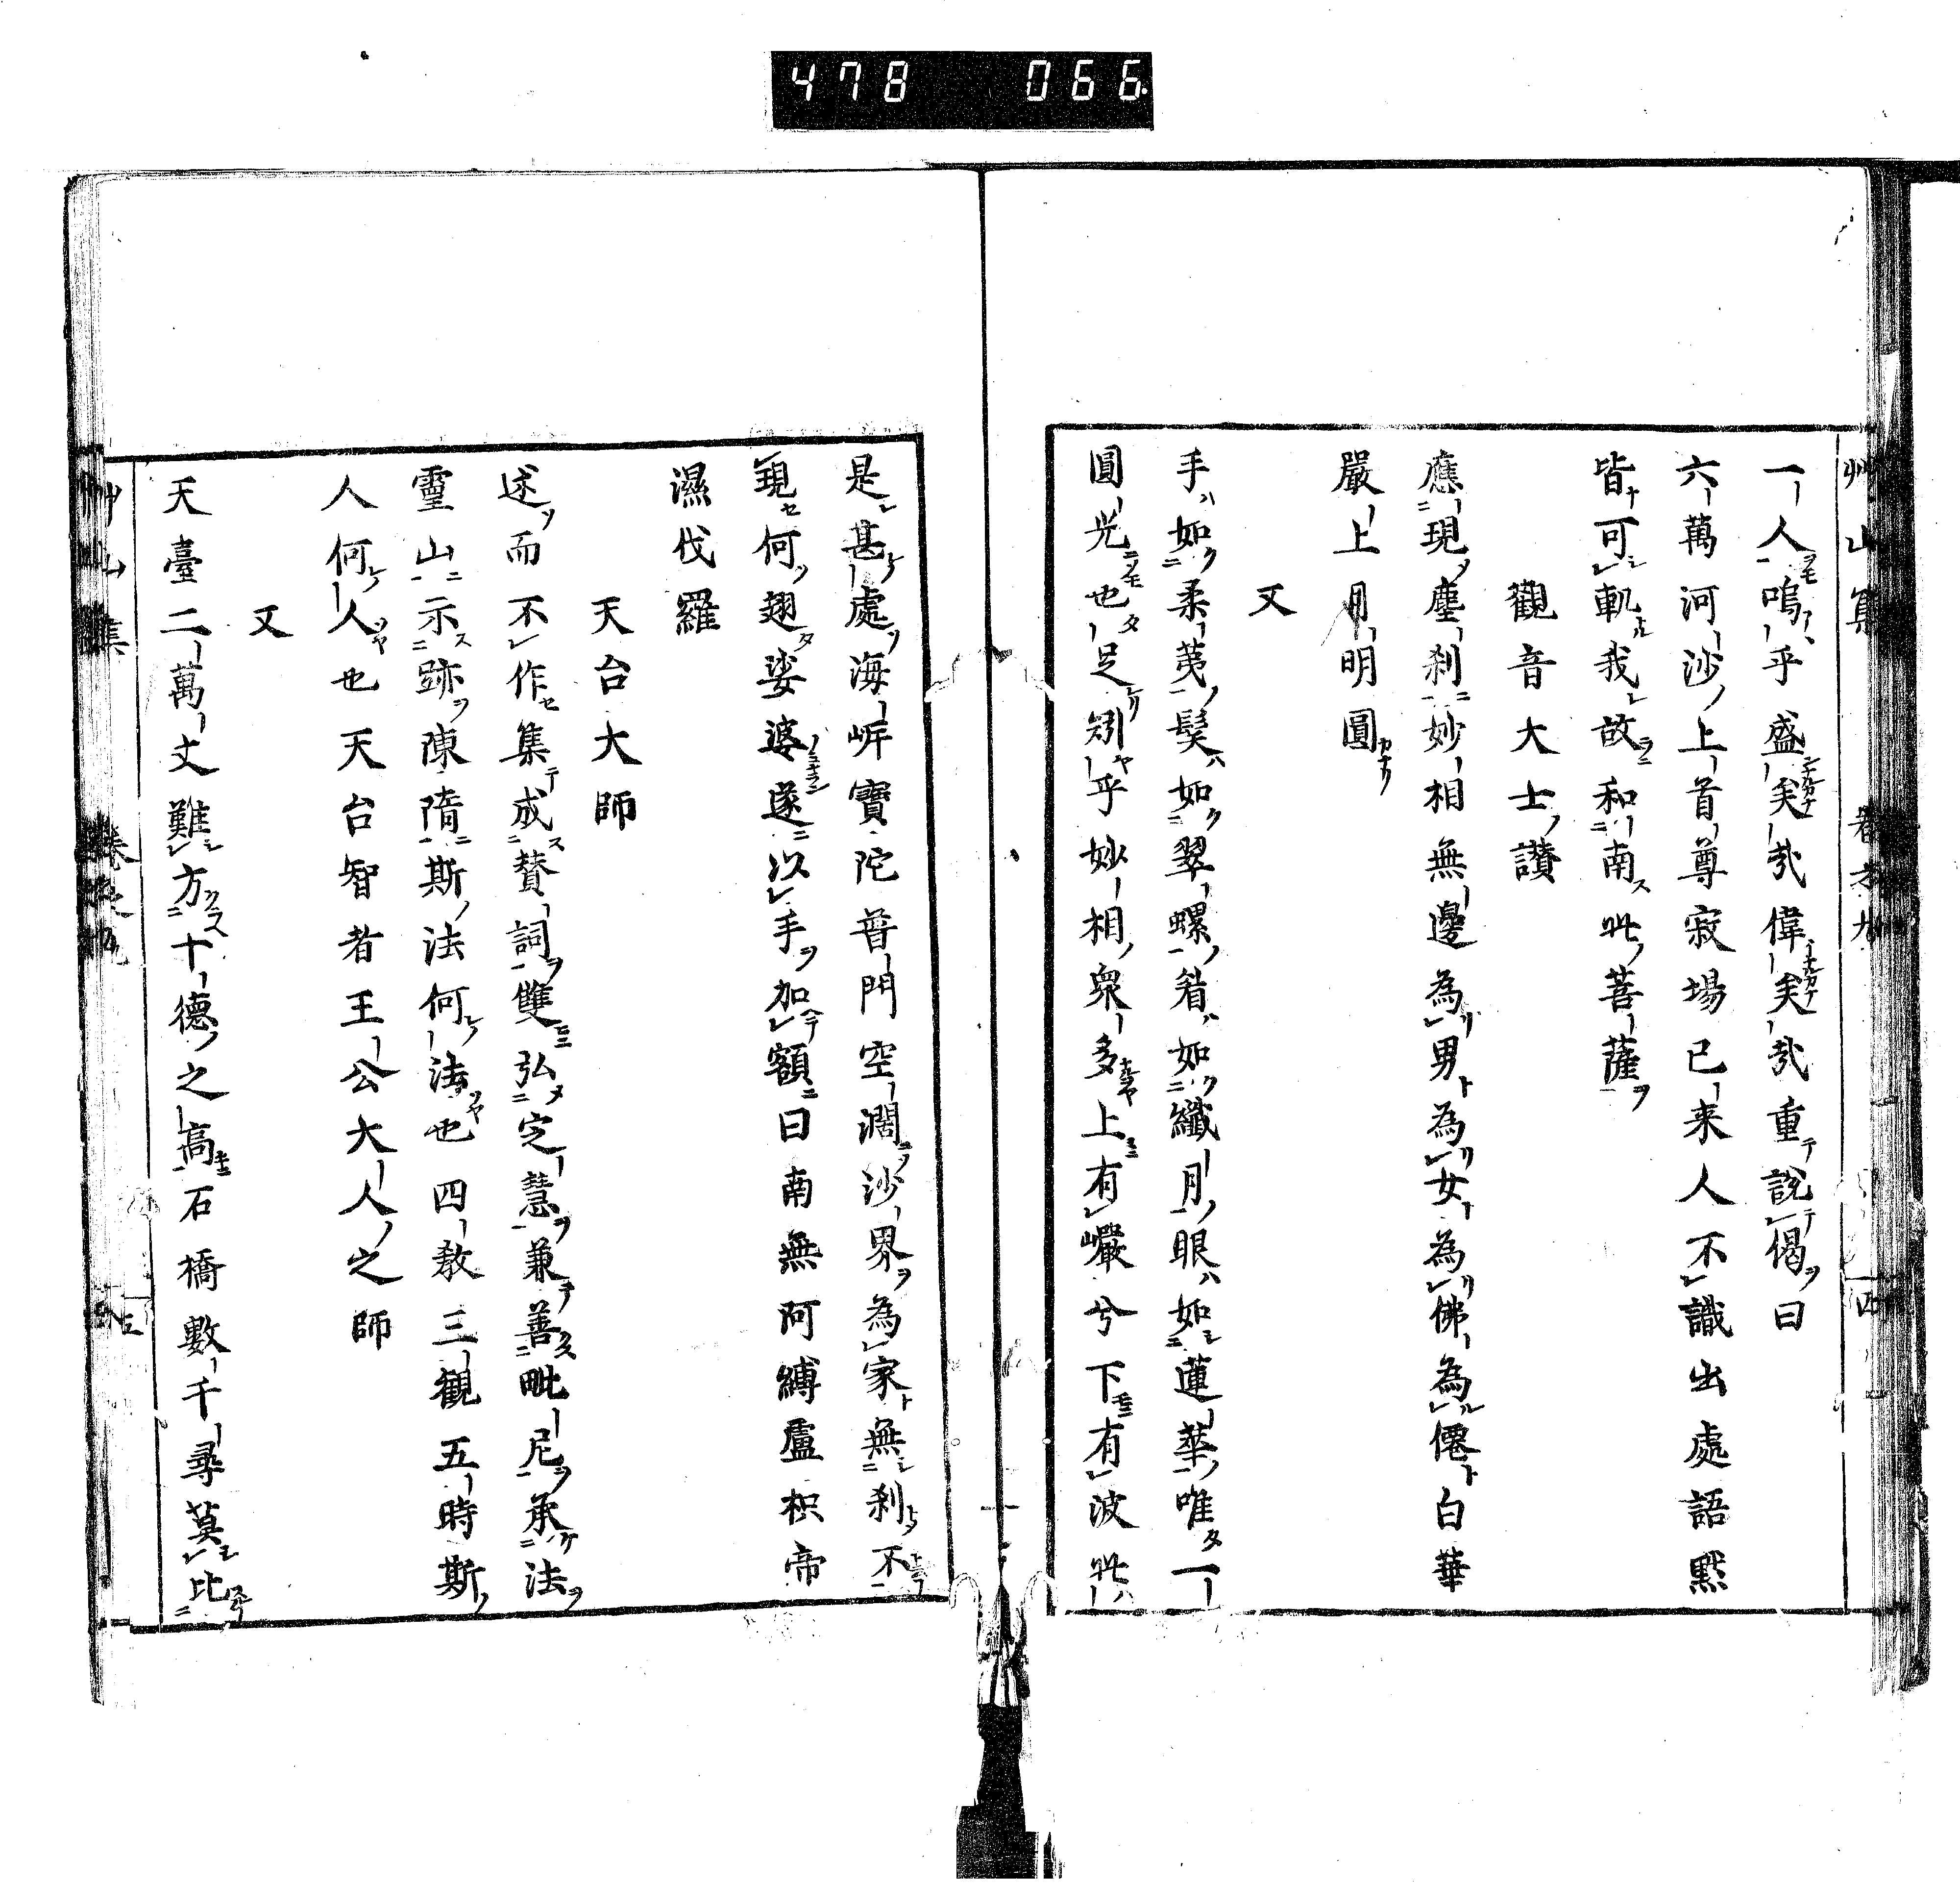 478 066
艸山集
一人嗚乎盛矣哉偉矣哉重說偈曰
六萬河沙上首尊寂場已来人不識出處語黙
皆可軌我故和南此菩薩
觀音大士讃
應現塵刹妙相無邊為男為女為佛為僊白華
嚴上月明圓
又
手如柔荑髮如翠螺眉如纖月眼如蓮華唯一
圓光也足矧乎妙相衆多上有巖兮下有波此
是甚處海岸寶陀普門空濶沙界為家無刹不
現何翅娑婆遂以手加額曰南無阿縛盧枳帝
濕伐羅
天台大師
述而不作集成賛詞雙弘定慧兼善毗尼承法
靈山示跡陳隋斯法何法也四教三觀五時斯
人何人也天台智者王公大人之師
又
天臺二萬丈難方十德之高石橋數千尋莫比
艸山集